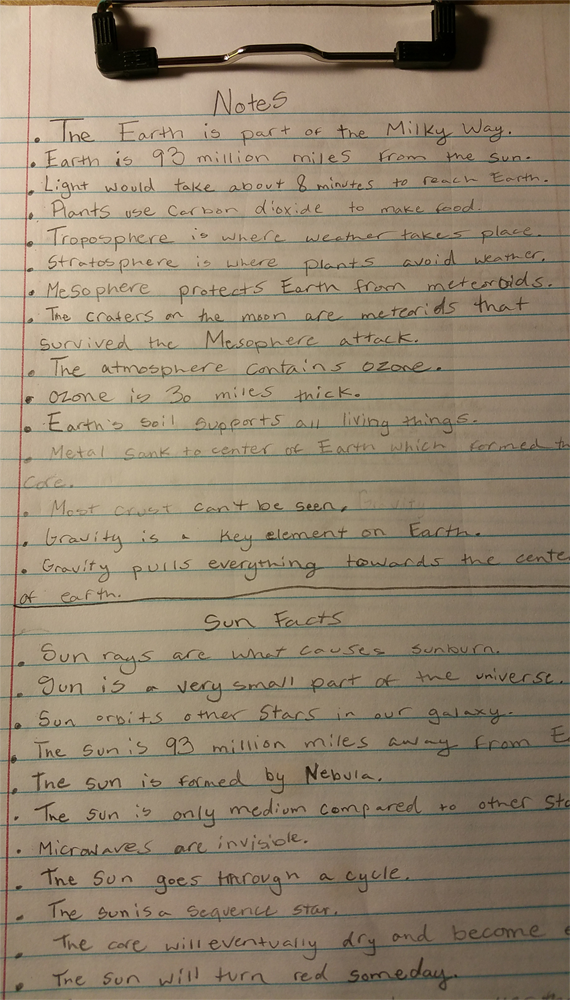 Notes
• The Earth is part of the Milky Way.
• Earth is 93 million miles from the sun.
• Light would take about 8 minutes to reach Earth.
• Plants use Carbon dioxide to make food.
• Troposphere is where weather takes place.
• Stratosphere is where plants avoid weather.
• Mesophere protects Earth from meteoroids.
• The craters on the moon are meteorids that
survived the Mesophere attack.
• The atmosphere contains ozone.
• Ozone is 30 miles thick.
• Earth's soil supports all living things.
• Metal sank to center of Earth which formed th
Core.
• Most crust can't be seen.
• Gravity is a key element on Earth.
• Gravity pulls everything towards the cente
of earth.
Sun Facts
• Sun rays are what causes sunburn.
• Sun is a very small part of the universe.
• Sun orbits other Stars in our galaxy.
• The sun is 93 million miles away from E
• The sun is formed by Nebula.
• The sun is only medium compared to other sta
• Microwaves are invisible.
• The Sun goes through a cycle.
• The sun is a sequence star.
• The core will eventually dry and become
• The sun will turn red someday.